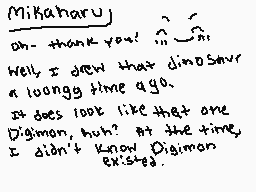 Mikaharu
oh- thank you!
Well, I drew that dinosaur
a loongg time ago.
It does look like that one
Digimon, huh? At the time,
I didn't know Digimon
existed.